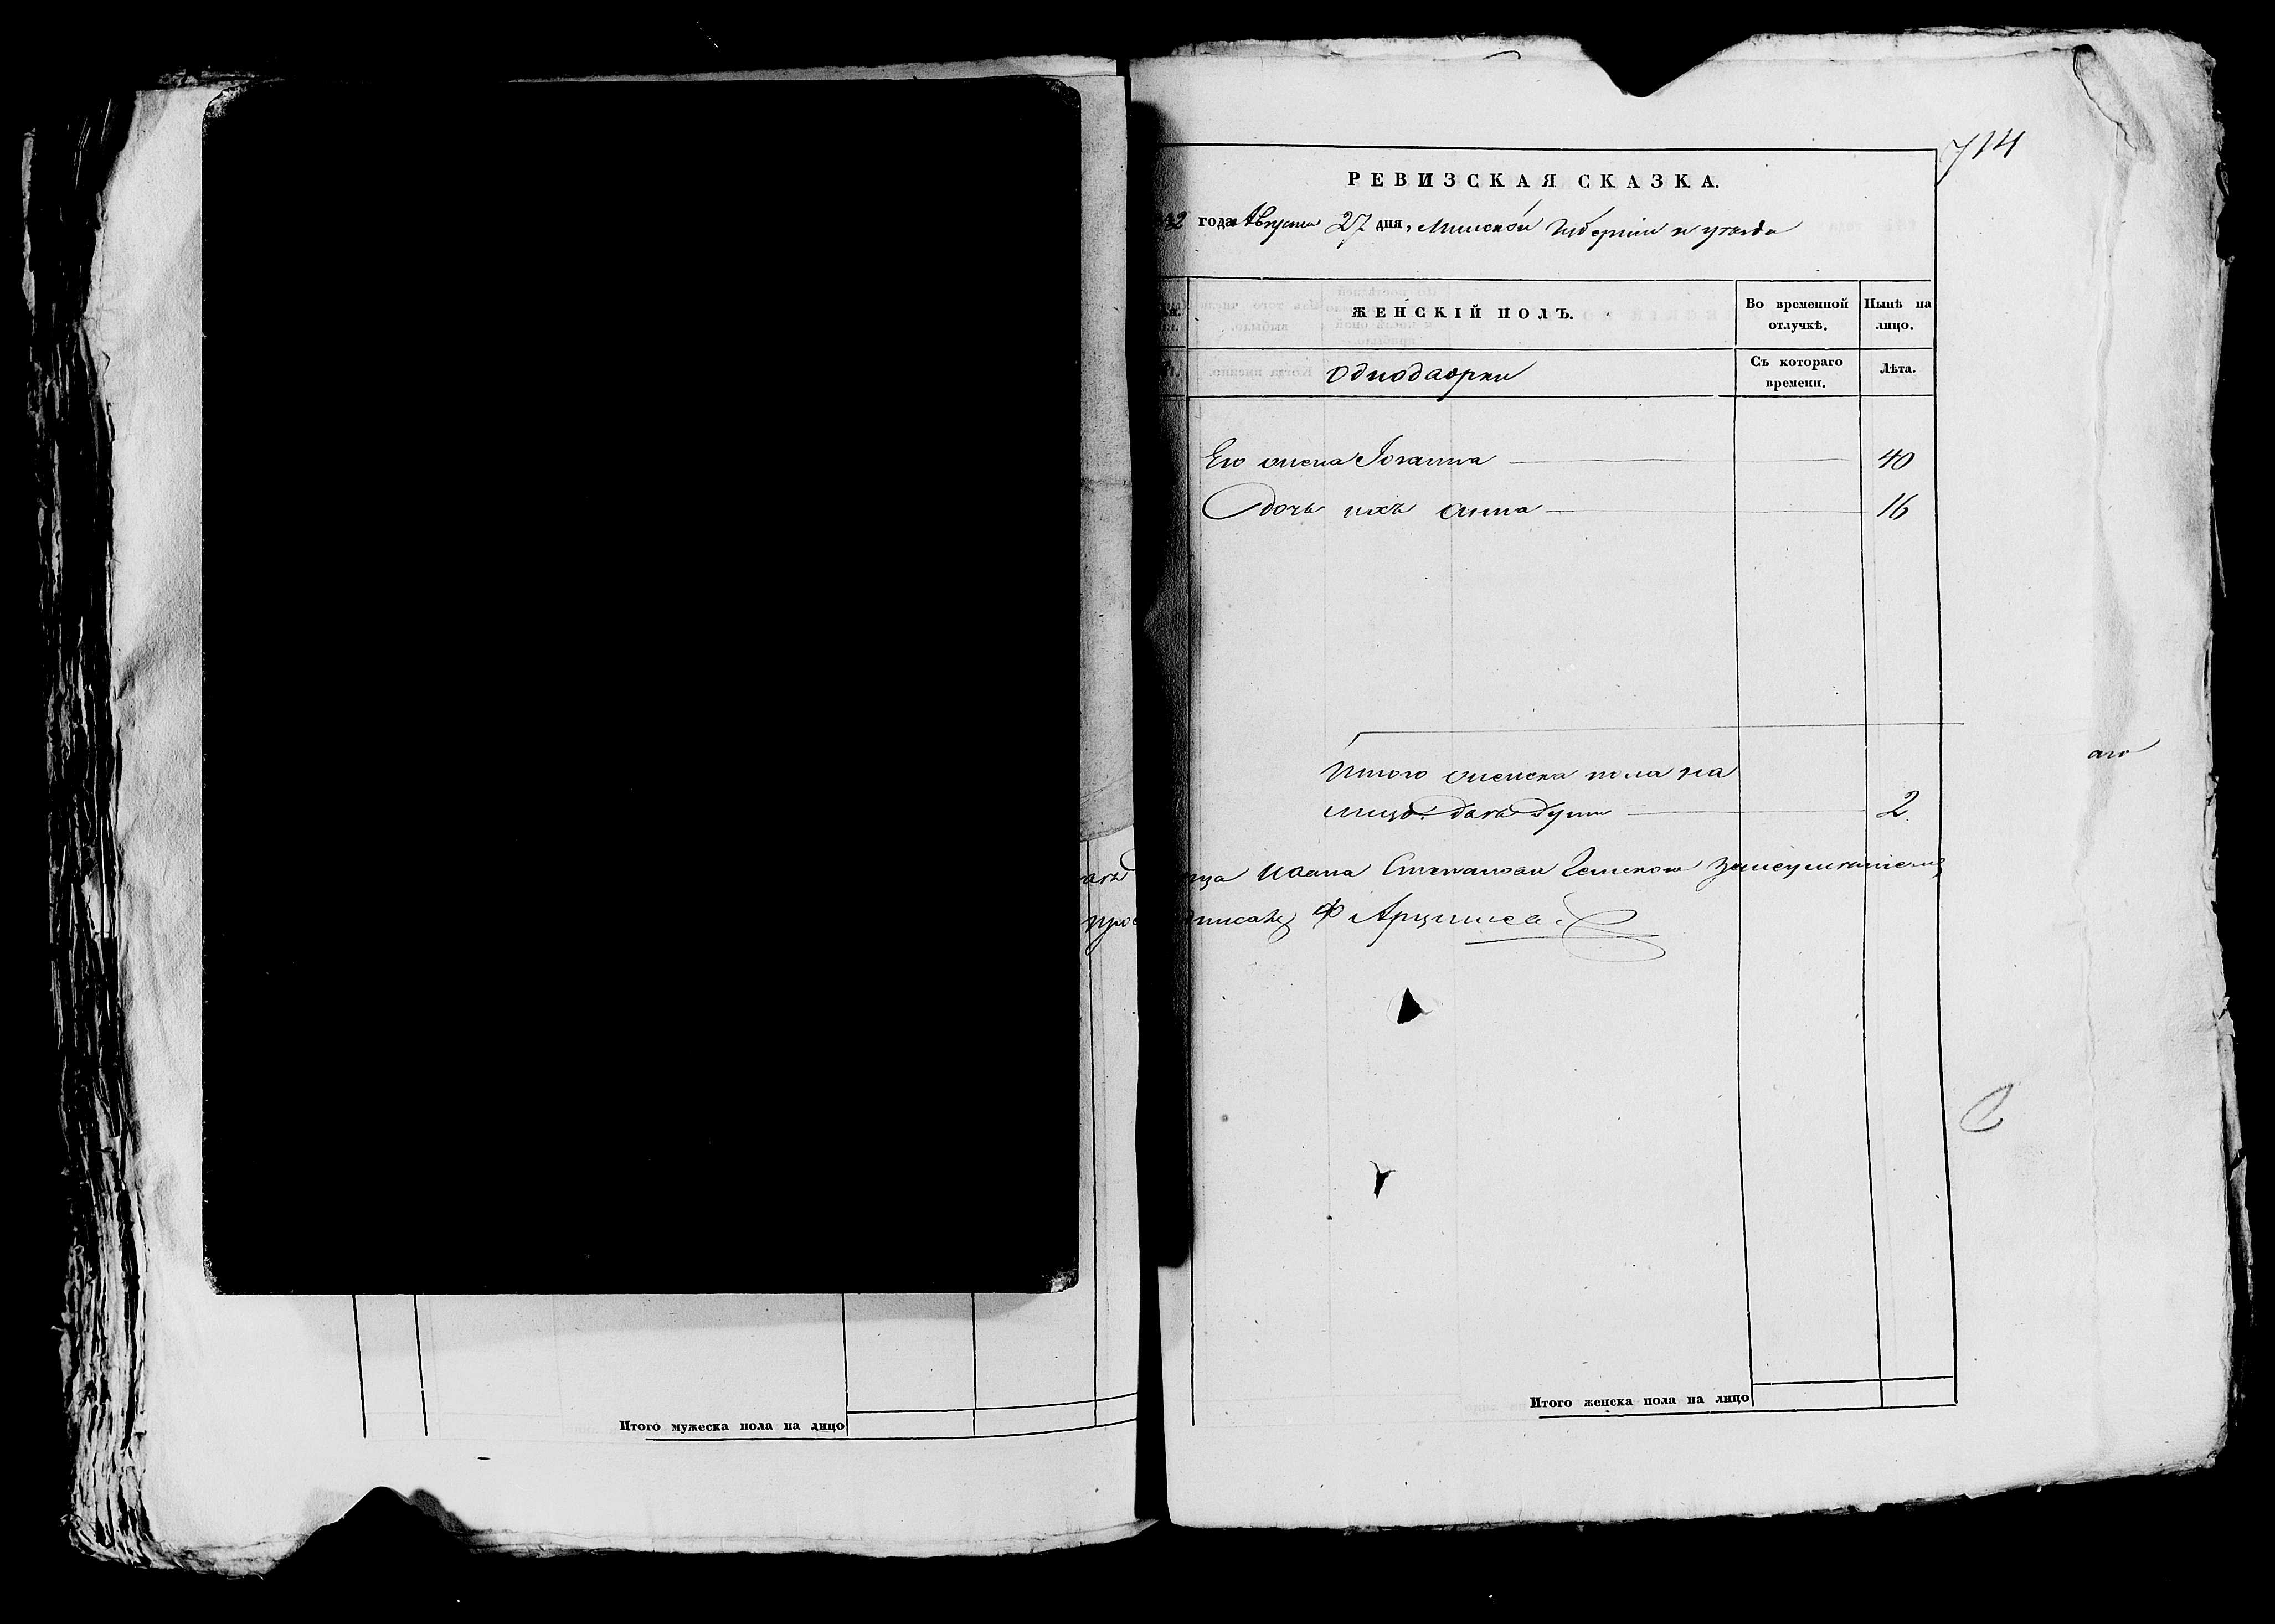 714
РЕВИЗСКАЯ СКАЗКА.
года Августа 27 дня, Минской Губерніи и уезда
ЖЕНСКІЙ ПОЛЪ.
Во временной отлучкѣ.
Нынѣ на лицо.
Однодворки
Съ котораго времени.
Лѣта.
Его жена Іоганна 40
Дочь ихъ Анна 16
Итого женска пола на
лицо две души 2
Ивана Степанова
Итого мужеска пола на лицо
Итого женска пола на лицо